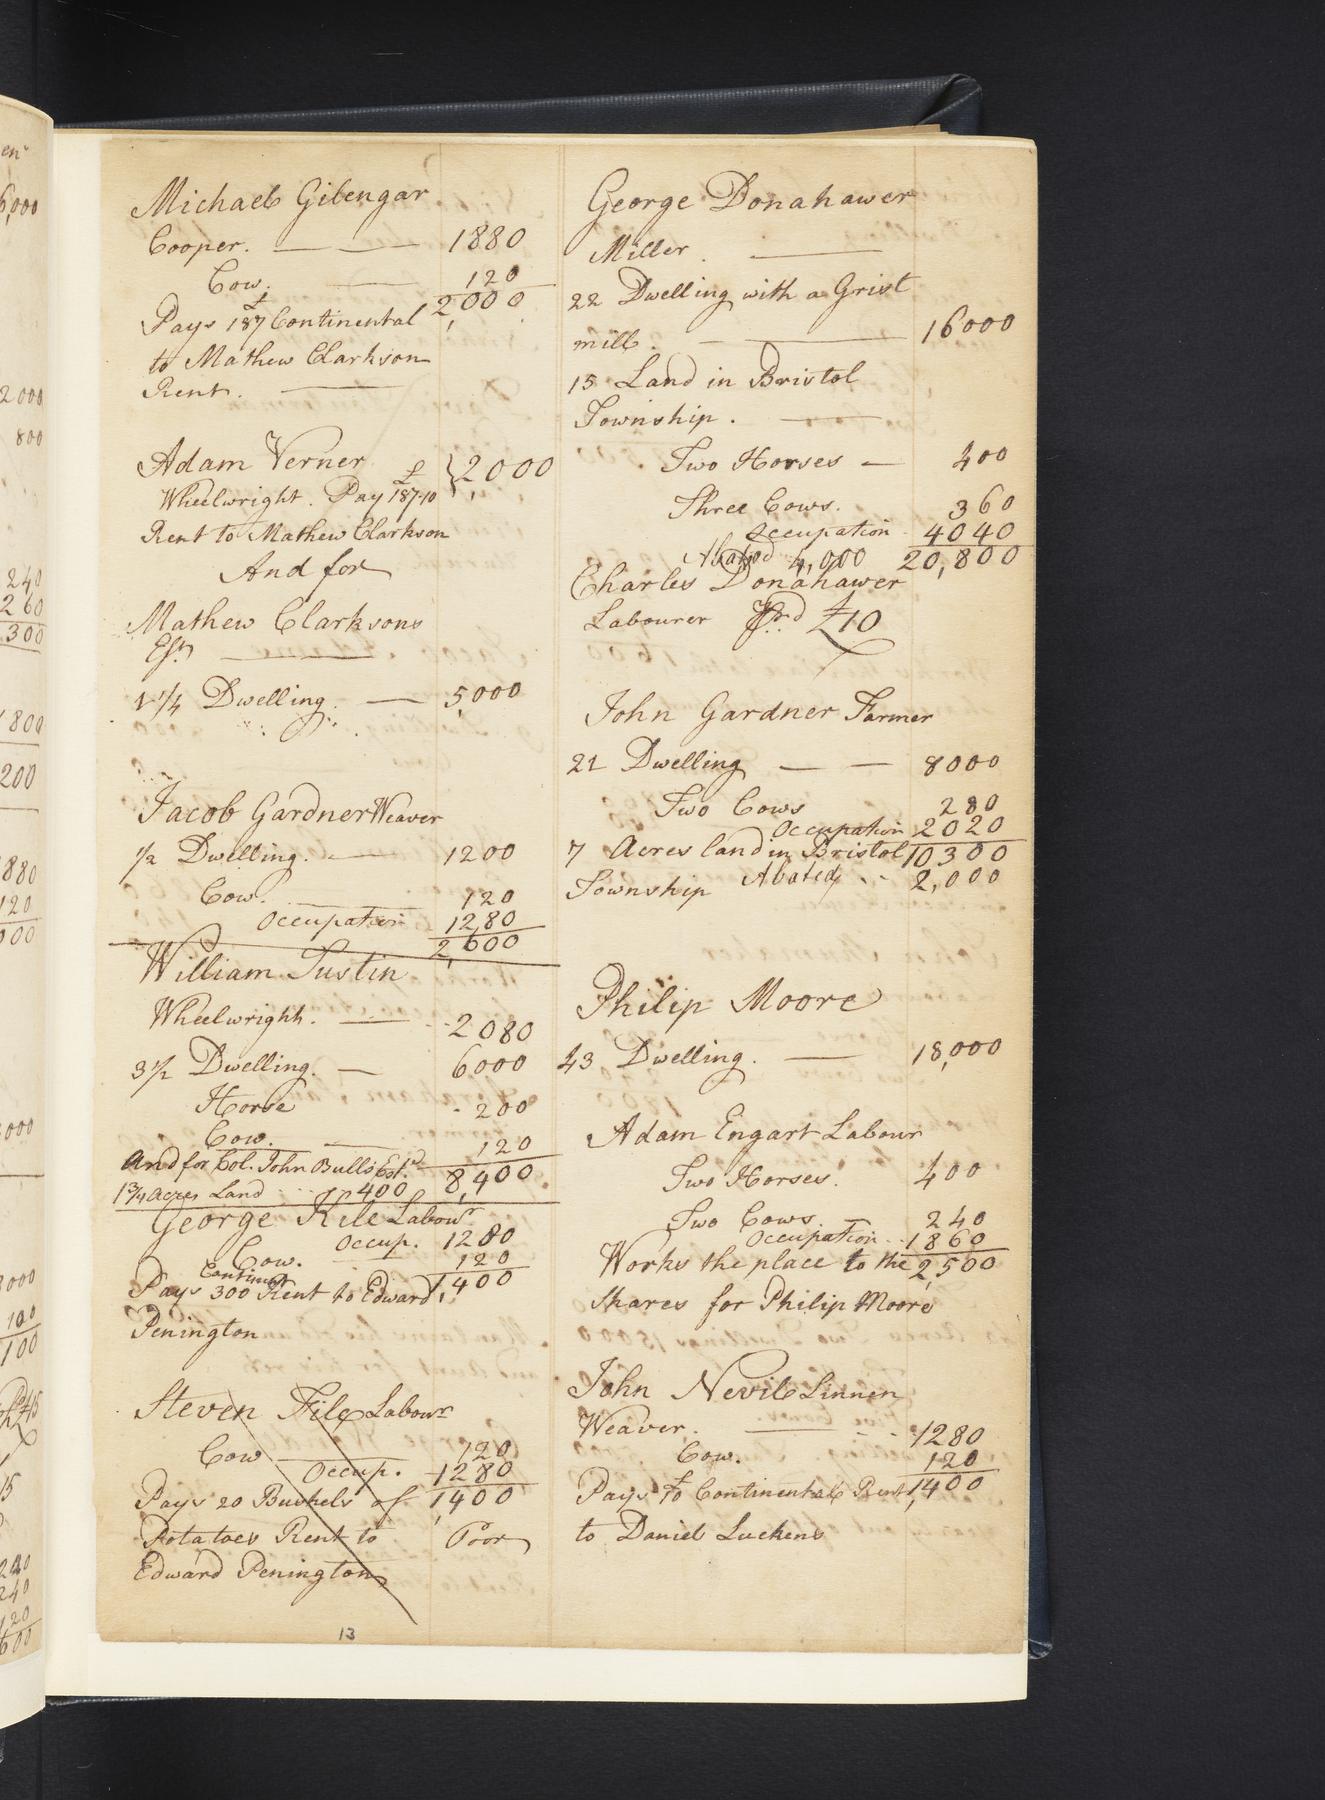 Michael Gilengar
Cooper. 1880
Cow. 120
2,000
Pays £187 Continental
to Mathew Clarkson
Rent.
Adam Verner } 2,000
Wheelwright. Pay £187-10
Rent to Mathew Clarkson
And for
Mathew Clarksons
Est.
1 1/4 Dwelling 5,000
Jacob Gardner Weaver
1/2 Dwelling. 1200
Cow. 120
Occupation 1280
2,600
William Tustin
Wheelwright. 2080
3 1/2 Dwelling. 6000
Horse 200
Cow. 120
And for Col. John Bulls Est. 8,400
1 3/4 Acres Land 400
George Kile Labour
Occup. 1280
Cow. 120
Continent 1,400
Pays 300 Rent to Edward
Penington
Steven File Labour
Cow 120
Occup. 1280
Pays 20 Bushels of 1,400
Potatoes Rent to Poor
Edward Penington
13
George Donahawer
Miller.
22 Dwelling with a Grist
mill. 16000
15 Land in Bristol
Township.
Two Horses 400
Three Cows. 360
Occupation 4040
Abated 4,000 20,800
Charles Donahawer
Labourer £10
John Gardner Farmer
21 Dwelling 8000
Two Cows 280
Occupation 2020
7 Acres land in Bristol 10300
Township Abated 2,000
Philip Moore
43 Dwelling. 18,000
Adam Engart Labour
Two Horses. 400
Two Cows 240
Occupation 1860
Works the place to the 2,500
Shares for Philip Moore
John Nevil Linnen
Weaver. 1280
Cow. 120
Pays £70 Continental Rent 1,400
to Daniel Luckens